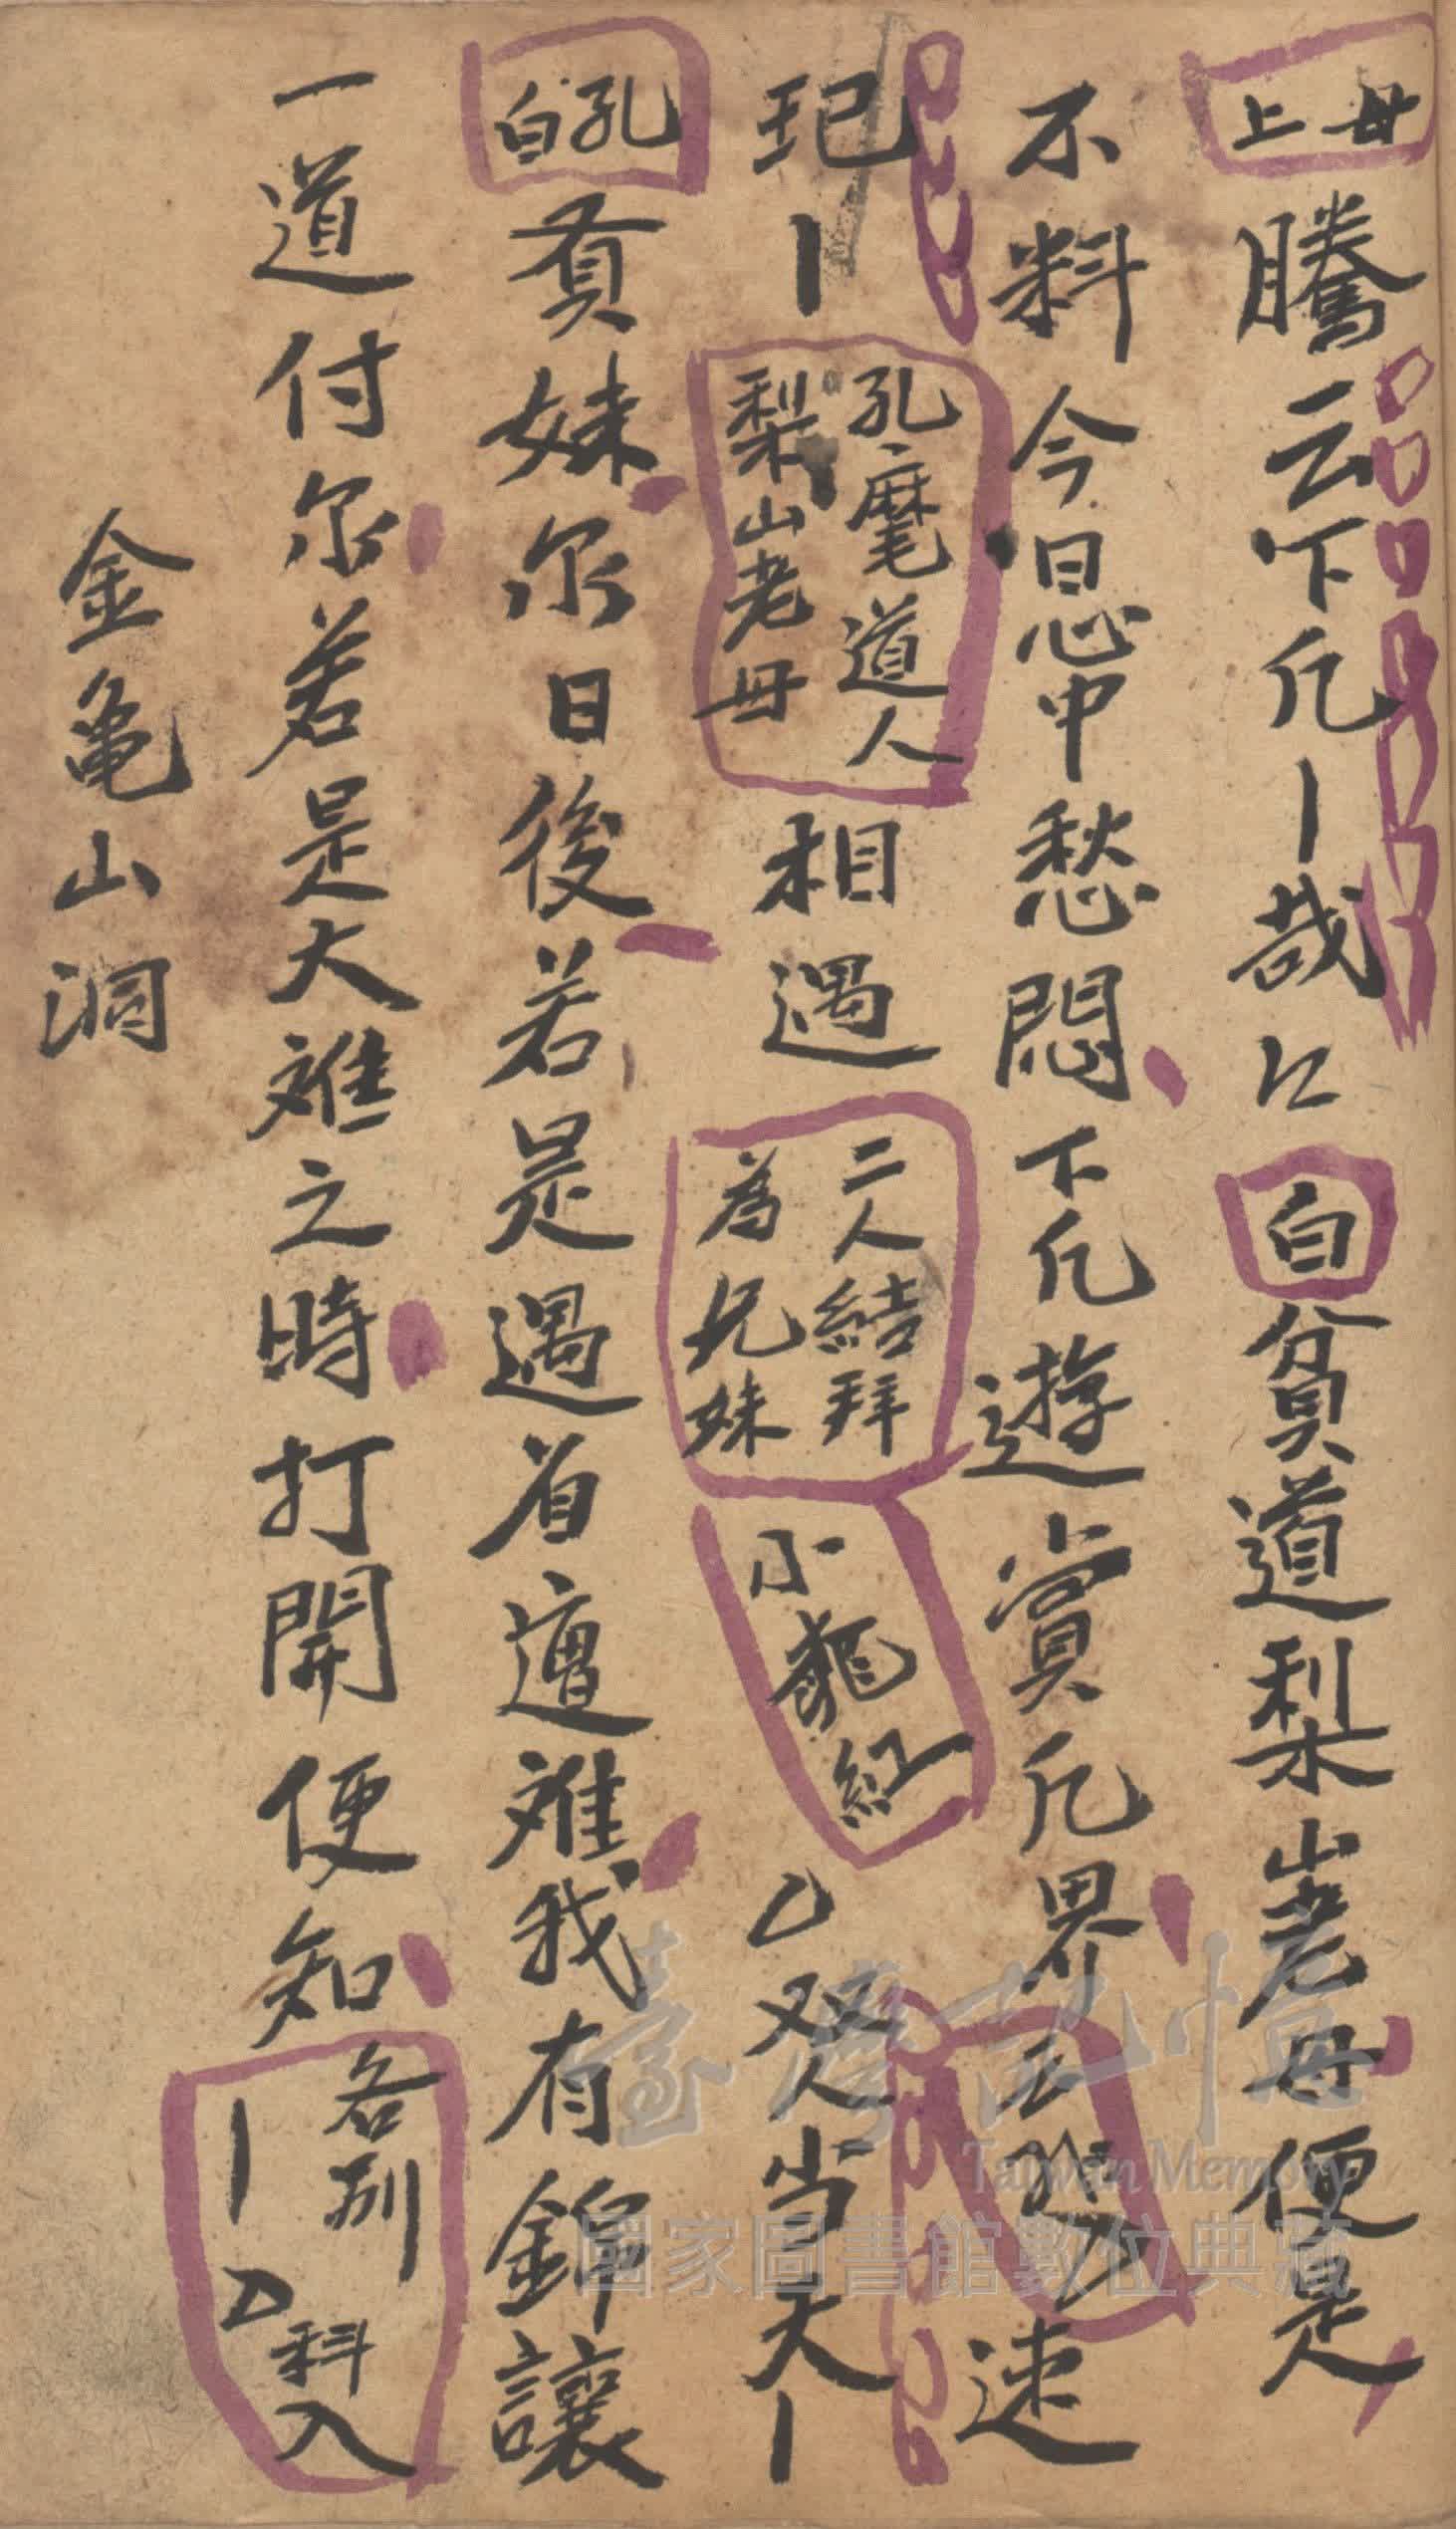 母上 騰云下凡丨哉 白 貧道梨山老母便是
不料今日心中愁悶下凡遊賞凡界 速
玘丨 孔麾道人 梨山老母 相遇 二人結拜 為兄妹 小 双当天丨
孔白 賢妹尔日後若是遇着遭难我有錦讓
一道付尔若是大难之時打開便知 各別丨 科入
金亀山洞
臺灣記憶
Taiwan Memory
國家圖書館數位典藏